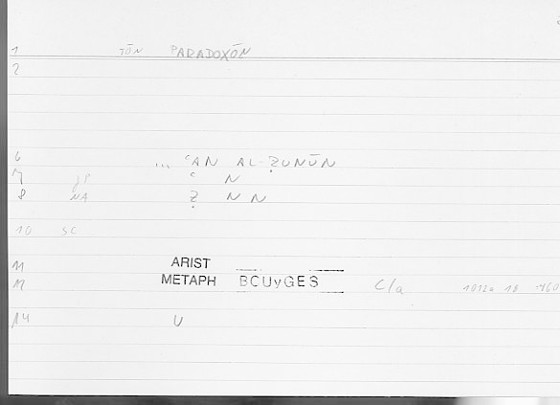 1 TŌN PARADOXŌN
2
6 ... ʿAN AL-ẒUNŪN
7 ʿ N
8 NA Ẓ N N
10 SC
11 ARIST
12 METAPH BCUyGES C/a
14 U